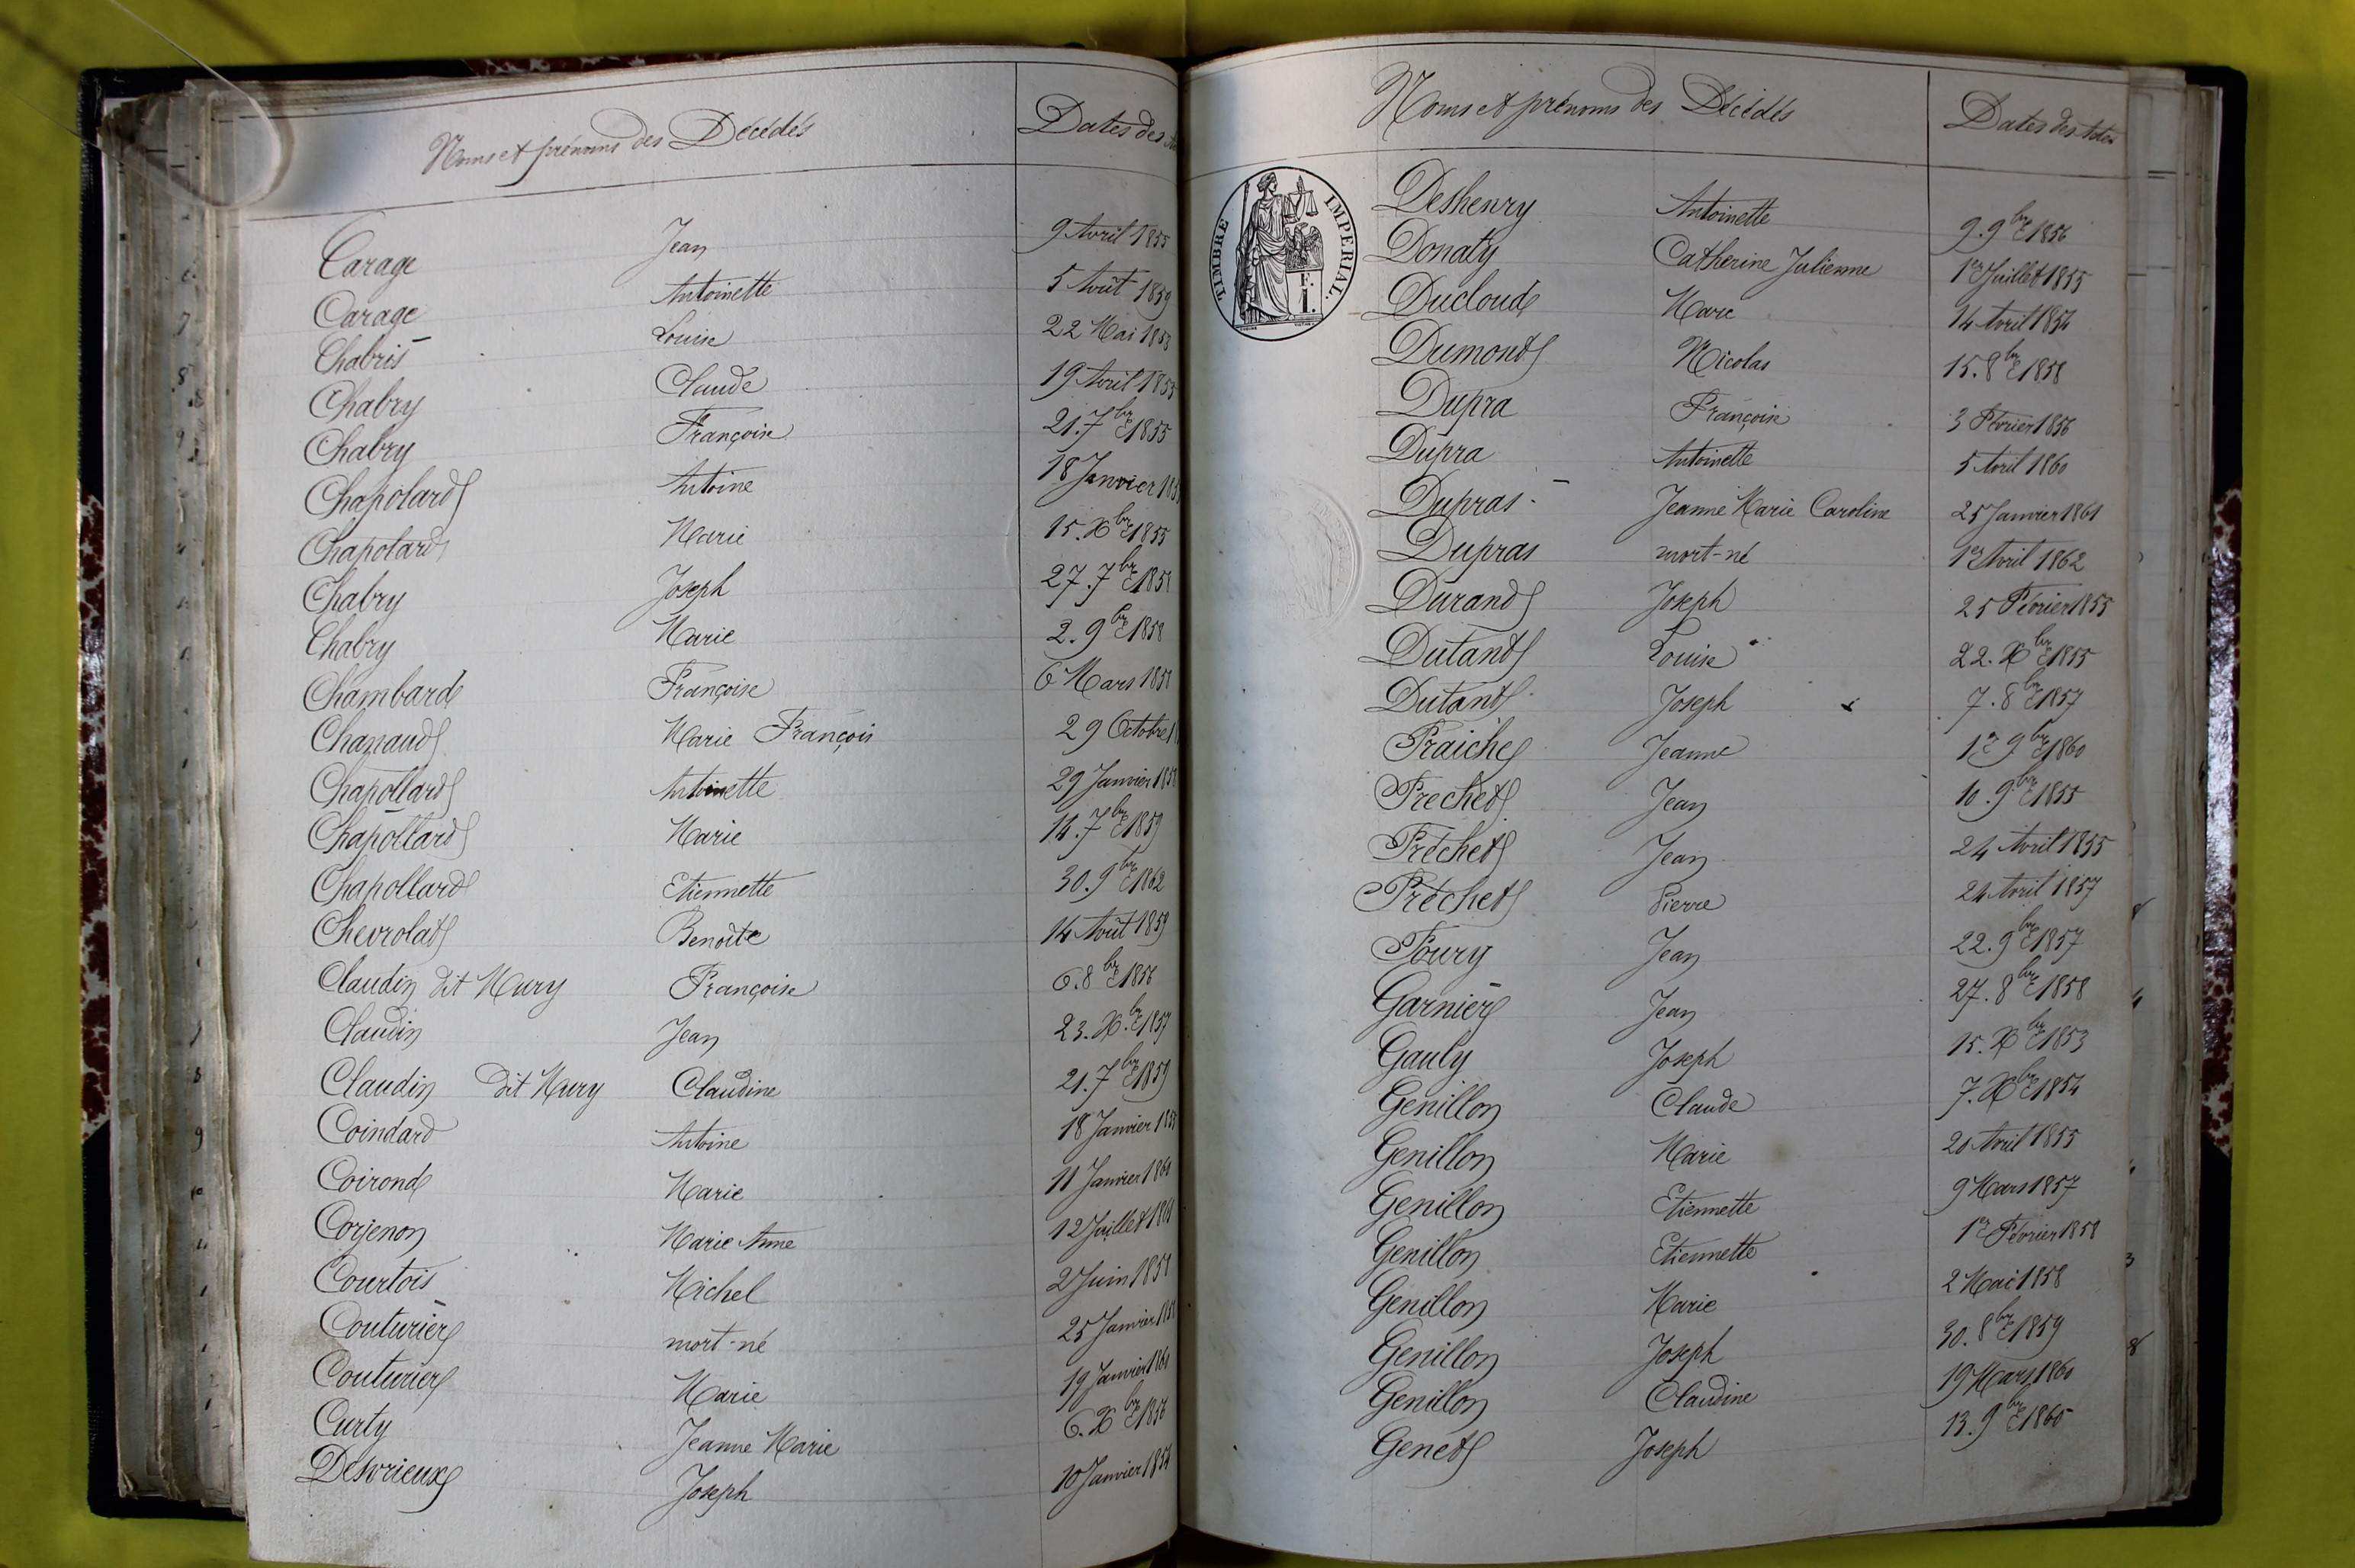 Noms et prénoms des Décédés Dates des
Carage Jean 9 Avril 1855
Carage Antoinette 5 Août 1859
Chabris Louise 22 Mai 185
Chabry Claude 19 Avril 1855
Chabry Françoise 21. 7bre 1855
Chapolard Antoine 18 Janvier 185
Chapolard Marie 15. Xbre 1855
Chabry Joseph 27. 7bre 1858
Chabry Marie 2. 9bre 1858
Chambard Françoise 6 Mars 1858
Chanaud Marie François 29 Octobre 1
Chapollard Antoinette 29 Janvier 185
Chapollard Marie 14. 7bre 1859
Chapollard Etiennette 30. 9bre 1862
Chevrolat Benoîte 14 Août 1859
Claudin dit Mury Françoise 6. 8bre 1856
Claudin Jean 23. Xbre 1857
Claudin dit Mury Claudine 21. 7bre 1859
Coindard Antoine 18 Janvier 185
Coirond Marie 11 Janvier 1860
Corjenon Marie Anne 12 Juillet 1861
Courtois Michel 2 Juin 1858
Couturier mort-né 25 Janvier 185
Couturier Marie 19 Janvier 1861
Curty Jeanne Marie 6. Xbre 1856
Desvrieux Joseph 10 Janvier 1854
Noms et prénoms des Décédés Dates des Actes
TIMBRE IMPERIAL.
F.
1.
Deshenry Antoinette 9. 9bre 1856
Donaty Catherine Julienne 1er Juillet 1855
Ducloud Marc 14 Avril 1854
Dumont Nicolas 15. 8bre 1858
Dupra Françoise 3 Février 1856
Dupra Antoinette 5 Avril 1860
Dupras Jeanne Marie Caroline 25 Janvier 1861
Dupras mort-né 1er Avril 1862
Durand Joseph 25 Février 1855
Dutant Louise 22. Xbre 1855
Dutant Joseph 7. 8bre 1857
Fraiche Jeanne 1er 9bre 1860
Frechet Jean 10. 9bre 1855
Fréchet Jean 24 Avril 1855
Fréchet Pierre 24 Avril 1857
Foury Jean 22. 9bre 1857
Garnier Jean 27. 8bre 1858
Gauly Joseph 15. Xbre 1853
Genillon Claude 7. Xbre 1854
Genillon Marie 20 Avril 1855
Genillon Etiennette 9 Mars 1857
Genillon Etiennette 1er Février 1858
Genillon Marie 2 Mai 1858
Genillon Joseph 30. 8bre 1859
Genillon Claudine 19 Mars 1860
Genet Joseph 13. 9bre 1860